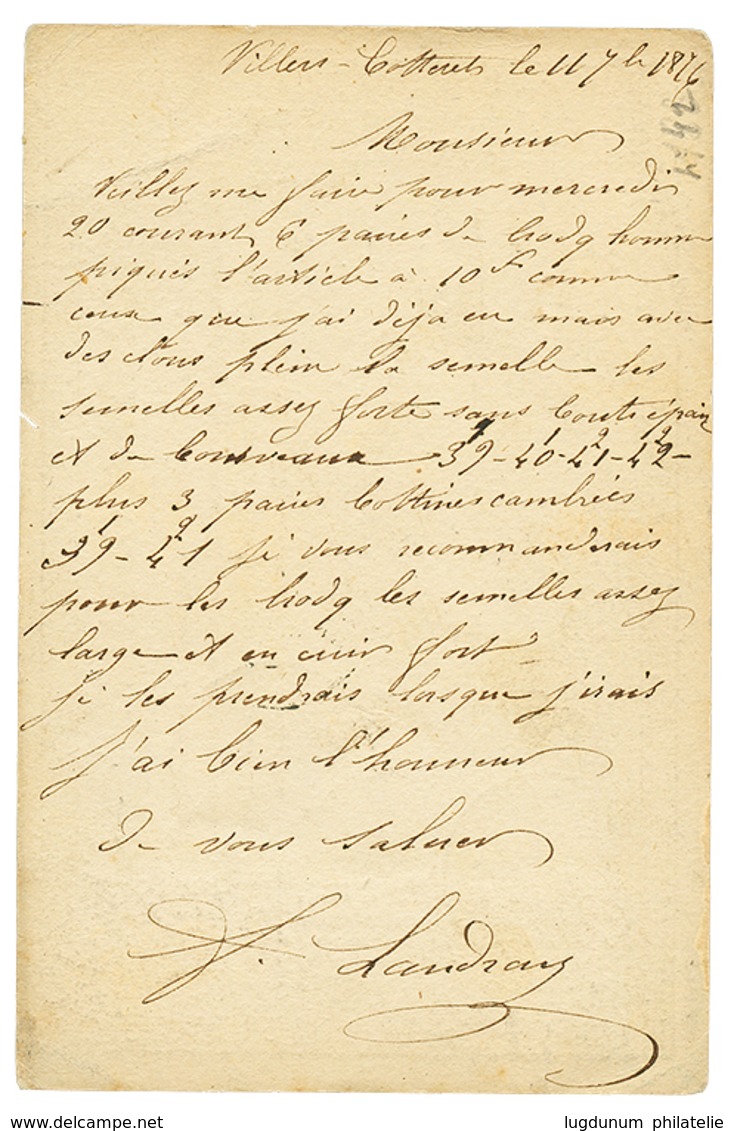 Villers-Cotterets le 11 7bre 1876
Monsieur
Veillez me faire pour mercredi
20 courant 6 paires de brodq homme
piqués l'article à 10f comme
ceux que j'ai déja eu mais avec
des clous plein la semelle les
semelles assez forte sans
et de 39-40-41-42-
1 1 2 2
plus 3 paires bottines cambrées
39-41 je vous recommanderais
1 2
pour les brodq les semelles assez
large et en cuir fort
je les prendrais lorsque j'irais
J'ai bien l'honneur
de vous saluer
Landray
delcampe.net
lugdunum philatelie